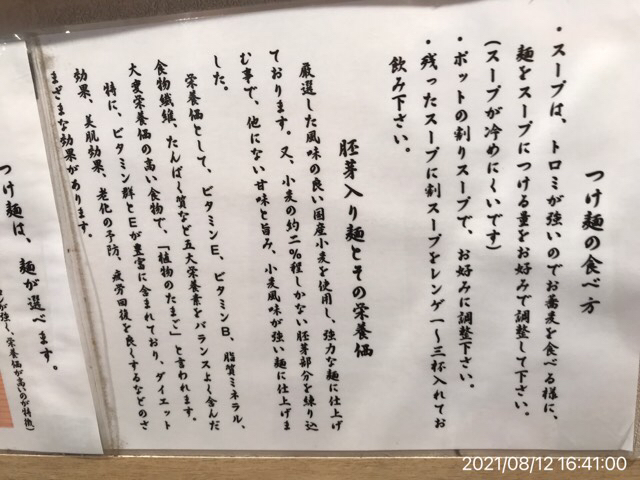 つけ麺の食べ方
・スープは、トロミが強いのでお蕎麦を食べる様に、
麺をスープにつける量をお好みで調整して下さい。
(スープが冷めにくいです)
・ポットの割りスープで、お好みに調整下さい。
・残ったスープに割スープをレンゲ一〜三杯入れてお
飲み下さい。
胚芽入り麺とその栄養価
厳選した風味の良い国産小麦を使用し、強力な麺に仕上げ
ております。又、小麦の約二%程しかない胚芽部分を練り込
む事で、他にない甘味と旨み、小麦風味が強い麺に仕上げま
した。
栄養価として、ビタミンE、ビタミンB、脂質ミネラル、
食物繊維、たんぱく質など五大栄養素をバランスよく含んだ
大変栄養価の高い食物で、「植物のたまご」と言われます。
特に、ビタミン群とEが豊富に含まれており、ダイエット
効果、美肌効果、老化の予防、疲労回復を良くするなどのさ
まざまな効果があります。
つけ麺は、麺が選べます。
が強く、栄養価が高いのが特徴)
2021/08/12 16:41:00